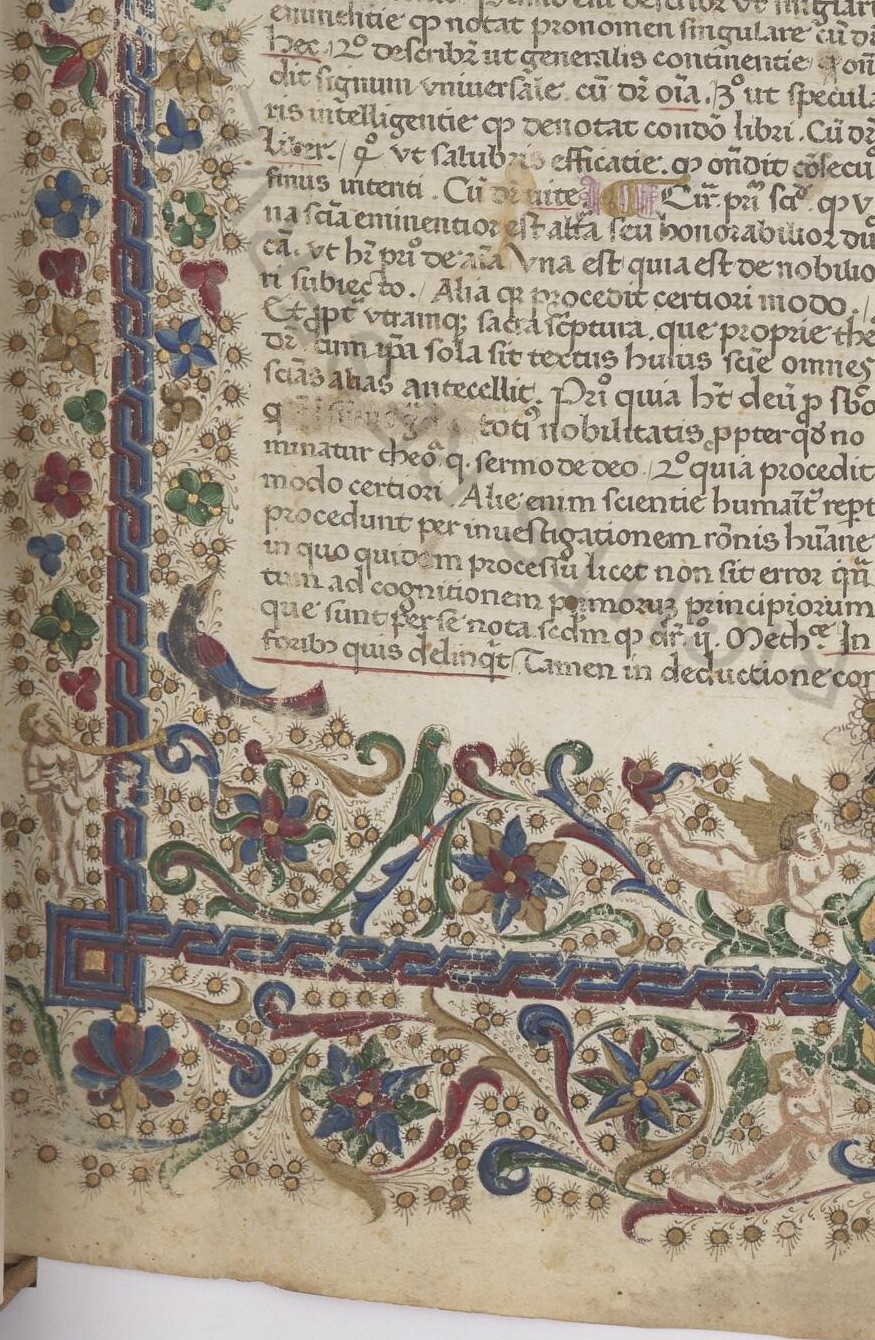 eminentie qp notat pronomen singulare cū dr̄
hec. 2º describr̄ ut generalis continentie
dit signum vniuersale. cū dr̄ oīa. 3º ut specula
ris intelligentie qp denotat condō libri. Cū dr̄
liber. / qº vt salubris efficatie. qp on̄dit cōsecu
finus intenti. Cū dr̄ uite Cir. pri qp v
na sciā eminentior est alta seu honorabilior du
cā. vt hr̄ prio de aīa Vna est quia est de nobilio
ri subiecto. / Alia qr procedit certiori modo. /
Et vtramqz sacra sc̄ptura. que proprie the
dr̄ cum ip̄a sola sit textus huius scīe omnes
sciās alias antecellit. Prio quia hr̄t deū p sbo
toti9 nobilitatis ppter qd no
minatur theo. q. sermo de deo. 2º quia procedit
modo certiori Alie enim scientie humait9 rept
procedunt per inuestigationem rōnis hūane
in quo quidem processū licet non sit error qn̄
tum ad cognitionem primoruz principiorum
que sunt per se nota. scdm qp dr̄. ij. Meth.e In
foribz quis delinqt Tamen in deductione con